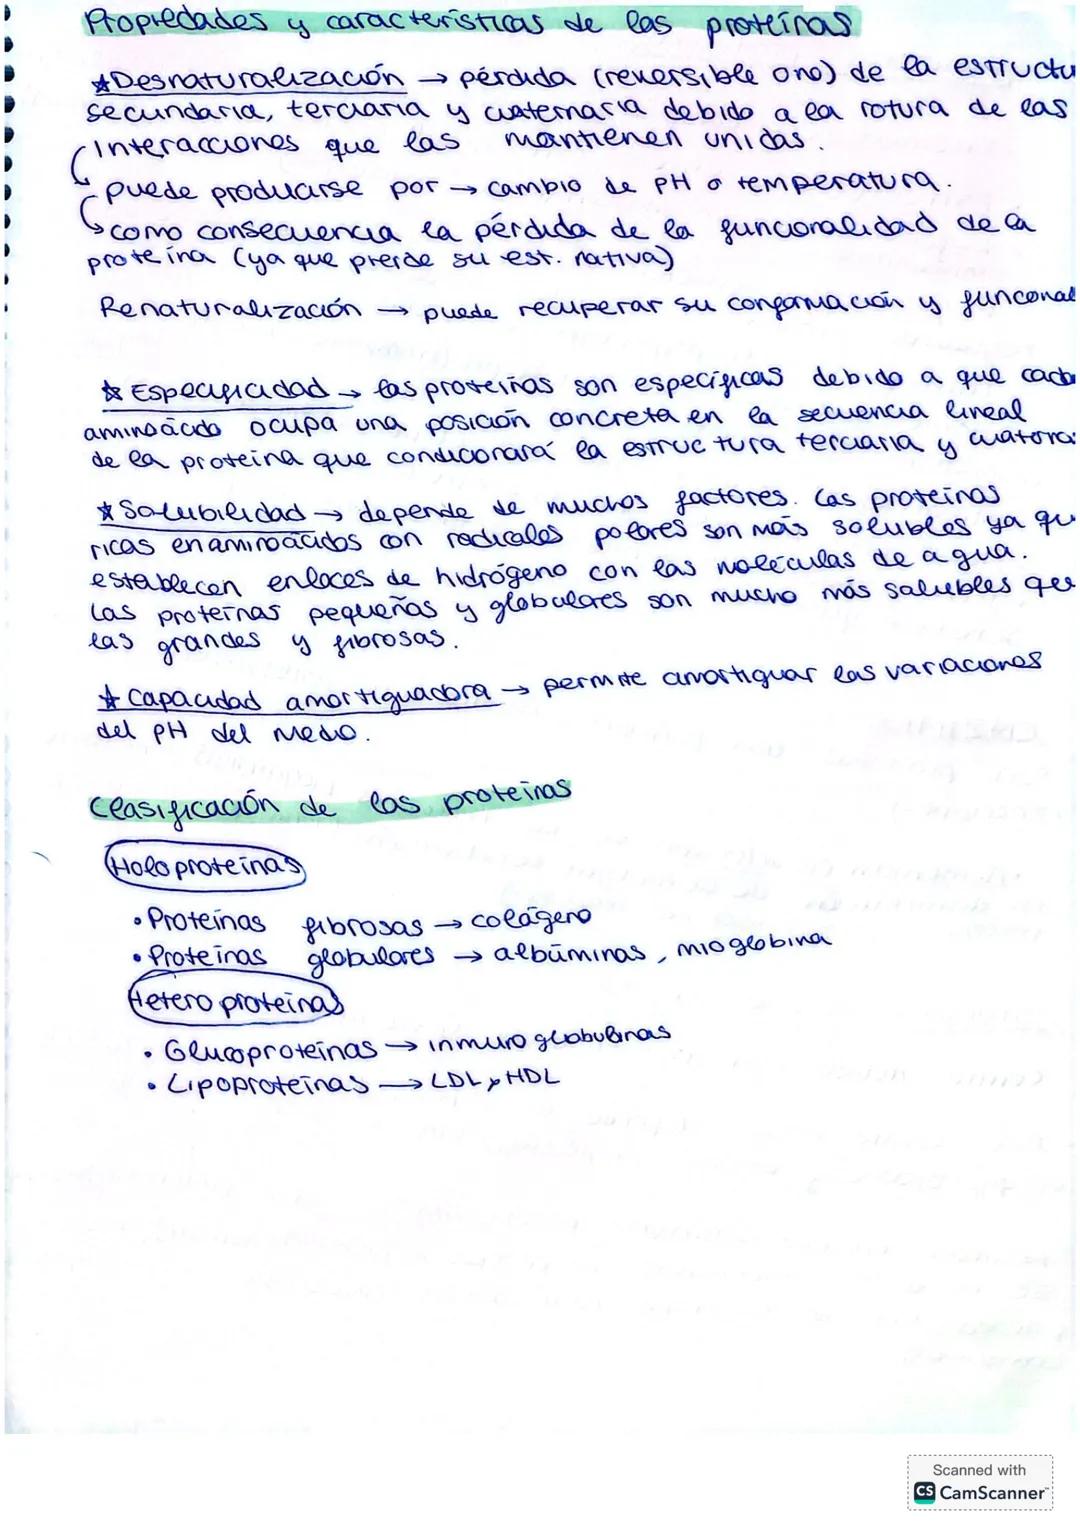 Propiedades y características de las proteínas
*Desnaturalización → pérdida (reversible o no) de la estructu
secundaria, terciaria y cuaternaria debido a la rotura de las
interacciones que las mantienen unidas.
puede producirse por → cambio de PH o temperatura.
como consecuencia la pérdida de la funcionalidad de la
proteína (ya que pierde su est. nativa)
Renaturalización → puede recuperar su conformación y funcional
*Especificidad → las proteínas son específicas debido a que cada
aminoácido ocupa una posición concreta en la secuencia lineal
de la proteína que condicionará la estructura terciaria y
*Solubilidad → depende de muchos factores. Las proteínas
ricas en aminoácidos con radicales polares son más solubles ya qu
establecen enlaces de hidrógeno con las moléculas de agua.
Las proteínas pequeñas y globulares son mucho más solubles que
las grandes y fibrosas.
*Capacidad amortiguadora → permite amortiguar las variaciones
del PH del medio.
Clasificación de las proteínas
Holoproteínas
• Proteínas fibrosas → colágeno
• Proteínas globulares → albúminas, mioglobina
Heteroproteínas
• Glucoproteínas → inmunoglobulinas
• Lipoproteínas → LDL y HDL
Scanned with
CS CamScanner